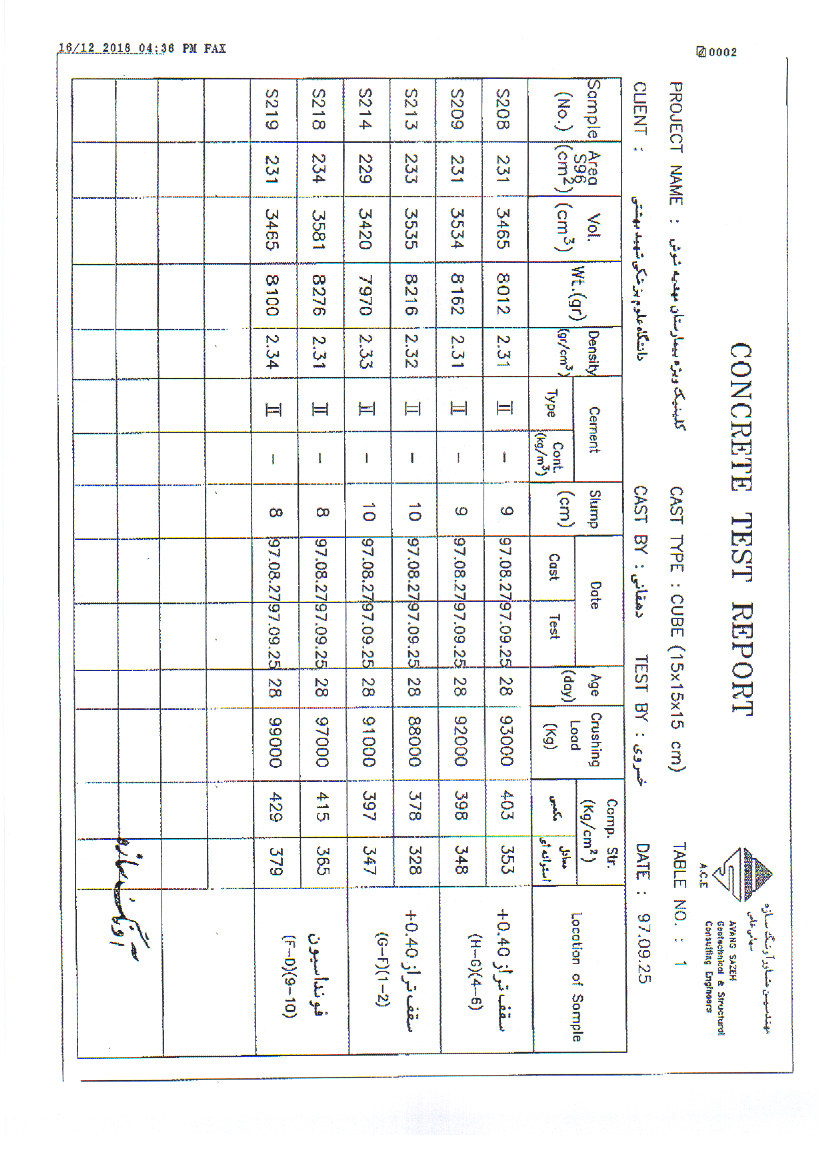 16/12 2018 04:36 PM FAX 0002
CONCRETE TEST REPORT
مهندسین مشاور آونگ سازه
سهامی خاص
AVANG SAZEH
Geotechnical & Structural
Consulting Engineers
A.C.E
PROJECT NAME : کلینیک ویژه بیمارستان مهدیه شوش CAST TYPE : CUBE (15x15x15 cm) TABLE NO. : 1
CLIENT : دانشگاه علوم پزشکی شهید بهشتی CAST BY : دهقانی TEST BY : خسروی DATE : 97.09.25
Sample (No.) Area S96 (cm2) Vol. (cm3) Wt.(gr) Density (gr/cm3) Cement Type Cont. (kg/m3) Slump (cm) Date Cast Test Age (day) Crushing Load (Kg) Comp. Str. (Kg/cm2) مکعبی معادل استوانه ای Location of Sample
S208 231 3465 8012 2.31 II - 9 97.08.27 97.09.25 28 93000 403 353 سقف تراز +0.40
S209 231 3534 8162 2.31 II - 9 97.08.27 97.09.25 28 92000 398 348 (H-G)(4-6)
S213 233 3535 8216 2.32 II - 10 97.08.27 97.09.25 28 88000 378 328 سقف تراز +0.40
S214 229 3420 7970 2.33 II - 10 97.08.27 97.09.25 28 91000 397 347 (G-F)(1-2)
S218 234 3581 8276 2.31 II - 8 97.08.27 97.09.25 28 97000 415 365 فونداسیون
S219 231 3465 8100 2.34 II - 8 97.08.27 97.09.25 28 99000 429 379 (F-D)(9-10)